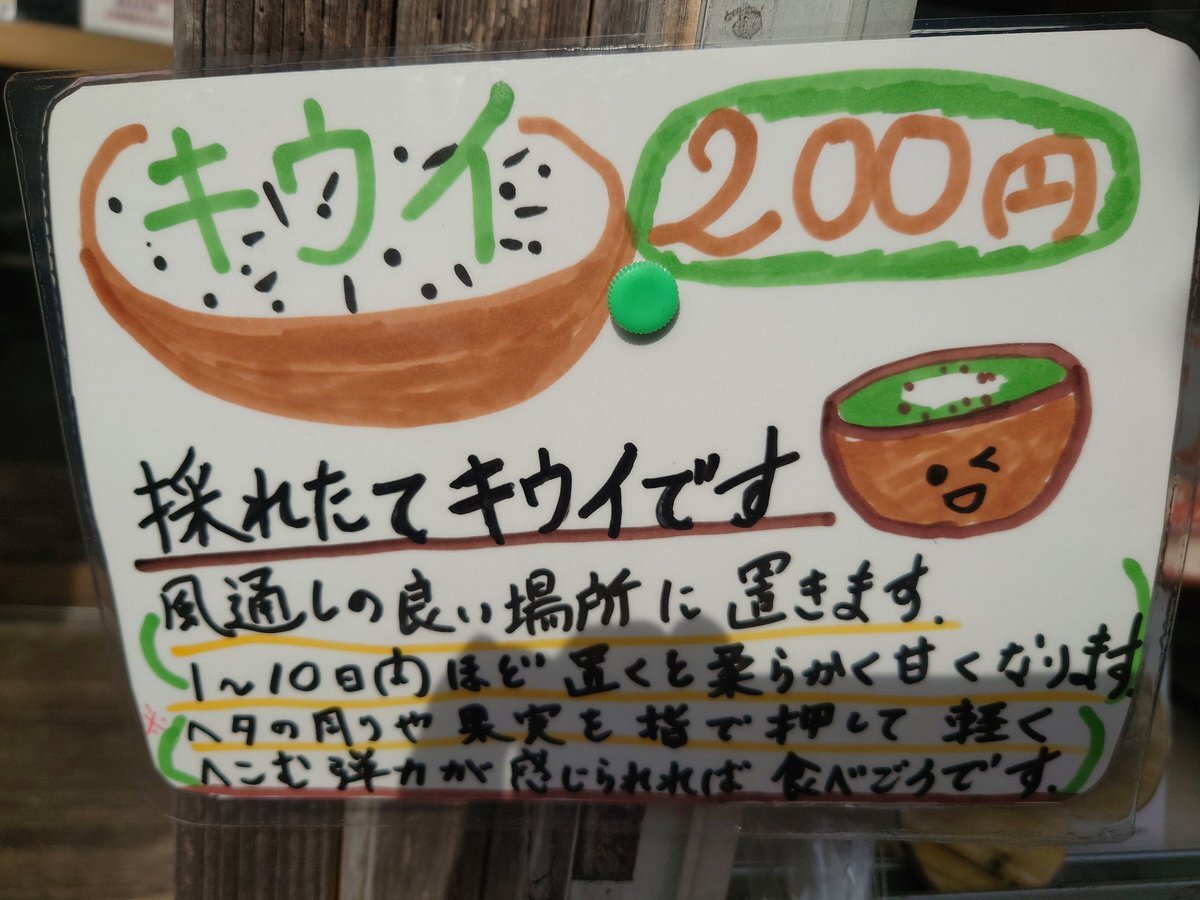 キウイ 200円
採れたてキウイです
風通しの良い場所に置きます.
1〜10日内ほど置くと柔らかく甘くなります.
※ヘタの周りや果実を指で押して軽く
へこむ弾力が感じられれば食べごろです.